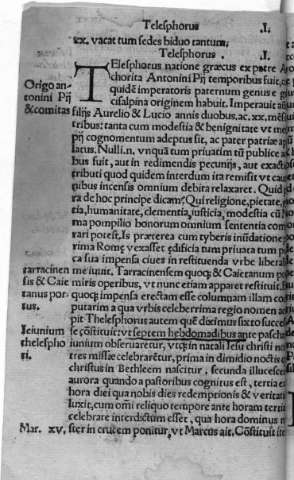 Telesphorus .I.
xx. vacat tum sedes biduo tantum.
Telesphorus .I.
TElesphorus natione græcus ex patre
chorita Antonini Pij temporibus fuit,
Origo an= quidē imperatoris paternum genus e
tonini Pij cisalpina originem habuit. Imperauit
&comitas filijs Aurelio & Lucio annis duobus, ac. xx, mēs
tribus: tanta cum modestia & benignitate vt me
pij cognomentum adeptus sit, ac pater patriæ
latus. Nulli. n. vnquā tum priuatim tū publice
bus fuit, aut in redimendis pecunijs, aut
tributi quod quidem interdum ita remisit vt
ribus incensis omnium debita relaxaret. Quid
ra de hoc principe dicam? Qui religione, pietate,
tia, humanitate, clementia, iusticia, modestia cū
ma pompilio bonorum omnium sententia com
rari potest. Is præterea cum tyberis inūdatione
rima Romę vexasset ędificia tum priuata tum
ca sua impensa ciues in restituenda vrbe liberali
tarracinen me iuuit. Tarracinensem quoq; & Caietanum
sis & Caie miris operibus, vt nunc etiam apparet restituit.
tanus por= quoq; impensa erectam esse columnam illam
tus. putarim a qua vrbis celeberrima regio nomen
pit Thelesphorus autem quē diximus sixto
Ieiunium se cōstituit: vt septem hebdomadibus ante pasch
thelespho iunium obseruaretur, vtq; in natali Iesu christi
ri. tres missæ celebrarētur, prima in dimidio noctis
christus in Bethleem nascitur, secunda illuces
aurora quando a pastoribus cognitus est, tertia
hora diei qua nobis dies redemprionis & veritati
luxit, cum omī reliquo tempore ante horam terti
celebrare interdictum esset, qua hora dominus
Mar. xv. ster in crucem ponitur, vt Marcus ait. Cōstituit